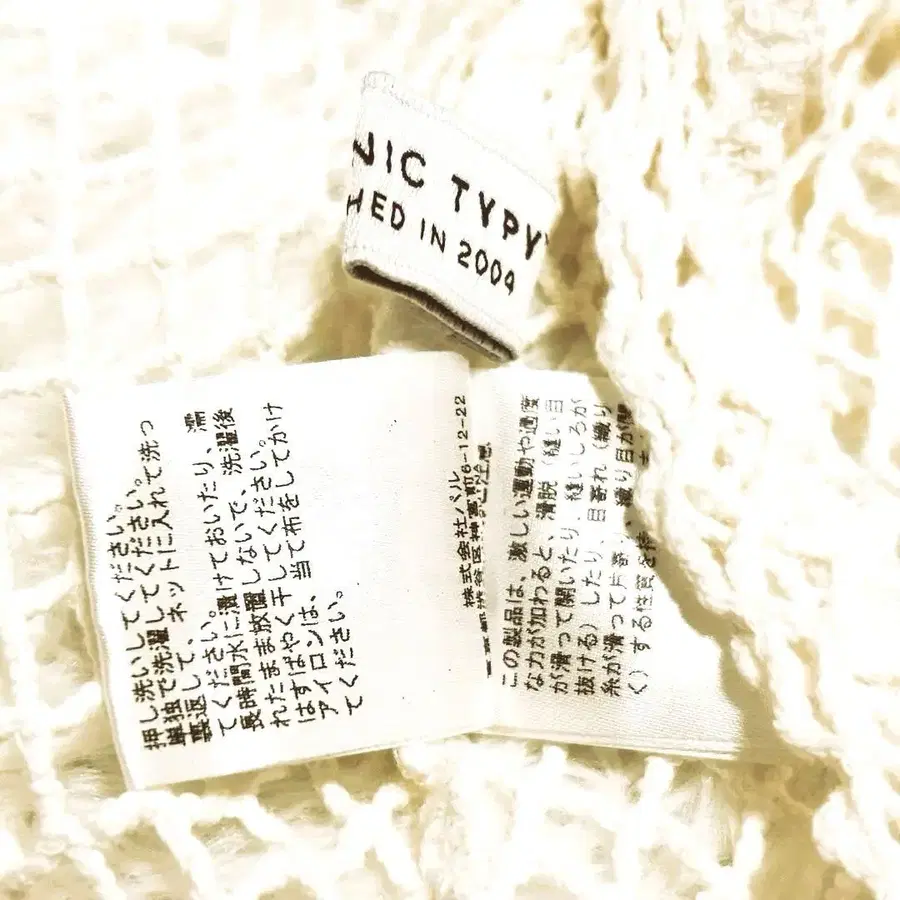 NIC TYPY
HED IN 2004
押し洗いしてください。
単独で洗濯してください。
裏返して、ネットに入れて洗っ
てください。
長時間水に漬けておいたり、濡
れたまま放置しないで、洗濯後
はすばやく干してください。
アイロンは、当て布をしてかけ
てください。
株式会社バル
6-12-22
この製品は、激しい運動や過度
な力が加わると、滑脱（縫い目
が滑って開いたり、縫いしろが
抜ける）したり、目寄れ（織り
糸が滑って片寄り、織り目が
く）する性質を